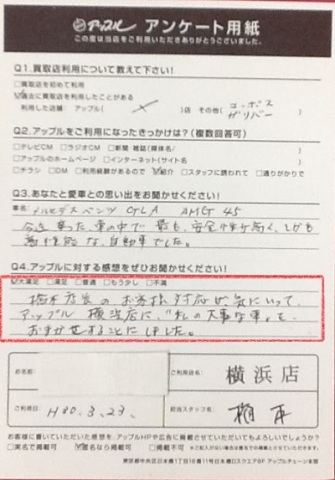 アップル アンケート用紙
この度は当店をご利用いただきありがとうございました。
Q1.買取店利用について教えて下さい!
□買取店を初めて利用
☑過去に買取店を利用したことがある
利用した店舗: アップル( )店 その他( ユーポス ガリバー )
Q2.アップルをご利用になったきっかけは?(複数回答可)
□テレビCM □ラジオCM □新聞・雑誌(媒体名: )
□アップルのホームページ □インターネット(サイト名 )
□チラシ □DM □利用経験があるので ☑紹介 □スタッフに誘われて □通りがかりで
Q3.あなたと愛車との思い出をお聞かせください!
車名: メルセデスベンツ GLA AMG 45
今迄乗った車の中で最も、安全性が高く、しかも
高性能な、自動車でした。
Q4.アップルに対する感想をぜひお聞かせください!
☑大満足 □満足 □普通 □もう少し □不満
橋本店長のお客様対応が気にいって、
アップル横浜店に、"私の大事な車"を、
おまかせすることにしました。
お名前:
ご利用店名: 横浜店
ご利用日: H30.3.23.
担当スタッフ名: 橋本
お客様に書いていただいた感想を、アップルHPや広告に掲載させていただいてもよろしいでしょうか?
□実名で掲載可 ☑匿名なら掲載可 □掲載不可
東京都中央区日本橋1丁目18番11号日本橋ロスクエア8F アップルチェーン本部